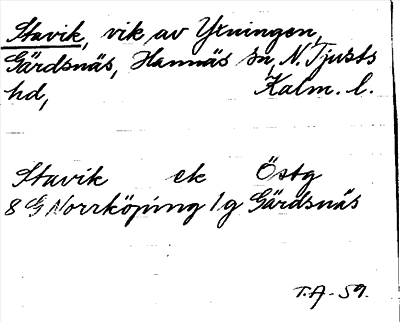 Stavik, vik av Yrningen,
Gärdsnäs, Hannäs sn, N. Tjusts
hd, Kalm. l.
Stavik ek Östg
8 G Norrköping 1g Gärdsnäs
T.A-59.